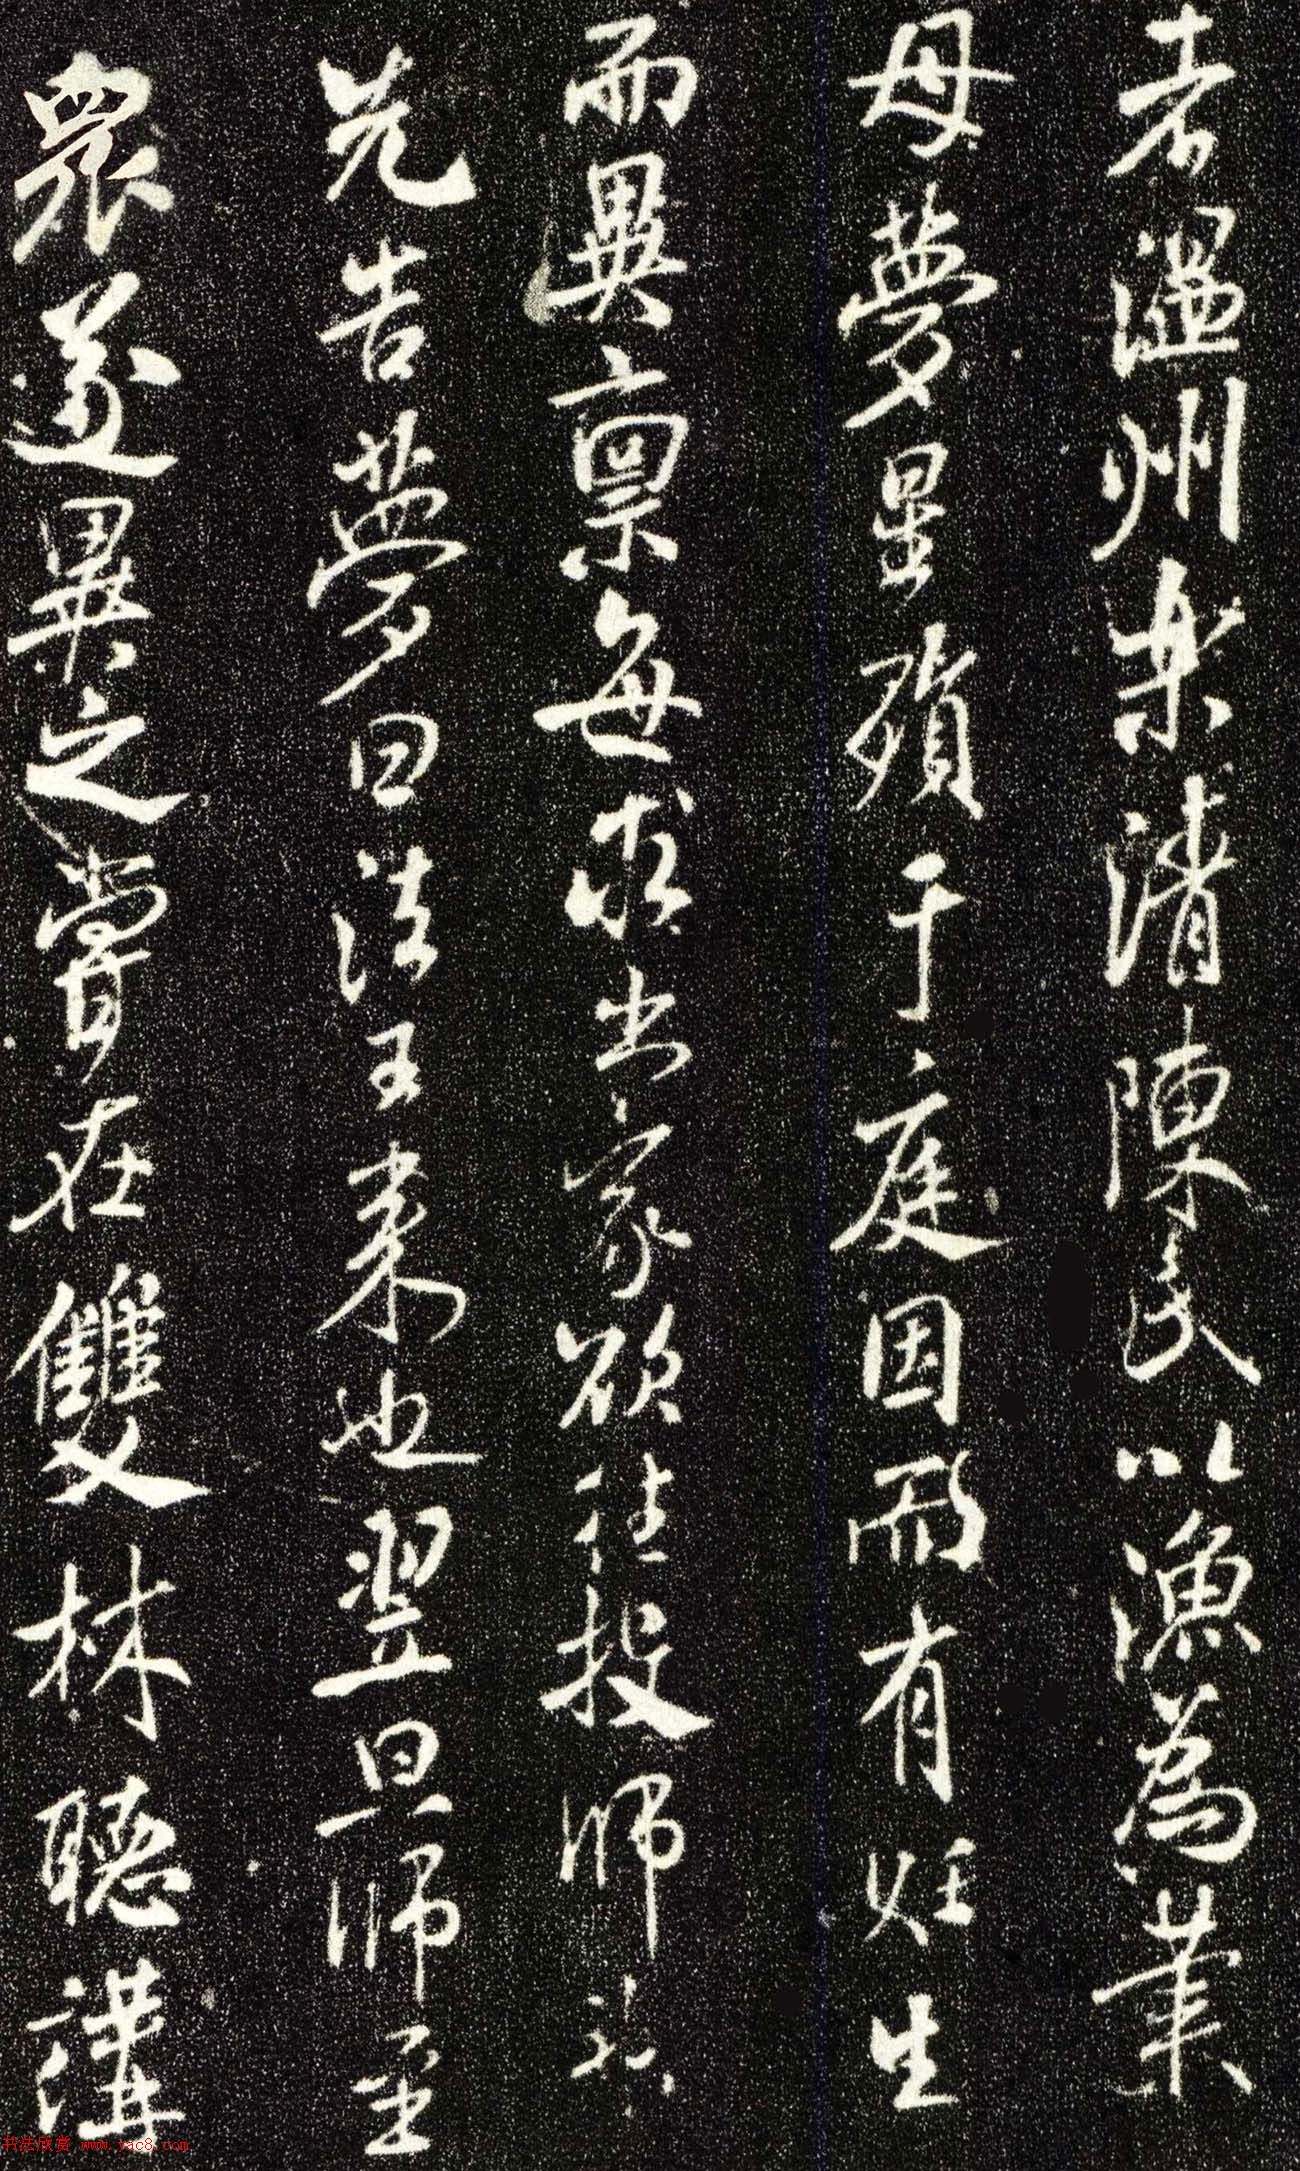 者温州樂清陳氏以漁為業
母夢星殞于庭因而有妊生
而異禀每求出家欲往投師
先告夢曰法王来也翌日師至
眾遂異之嘗在雙林聽講
书法欣赏 www.yac8.com